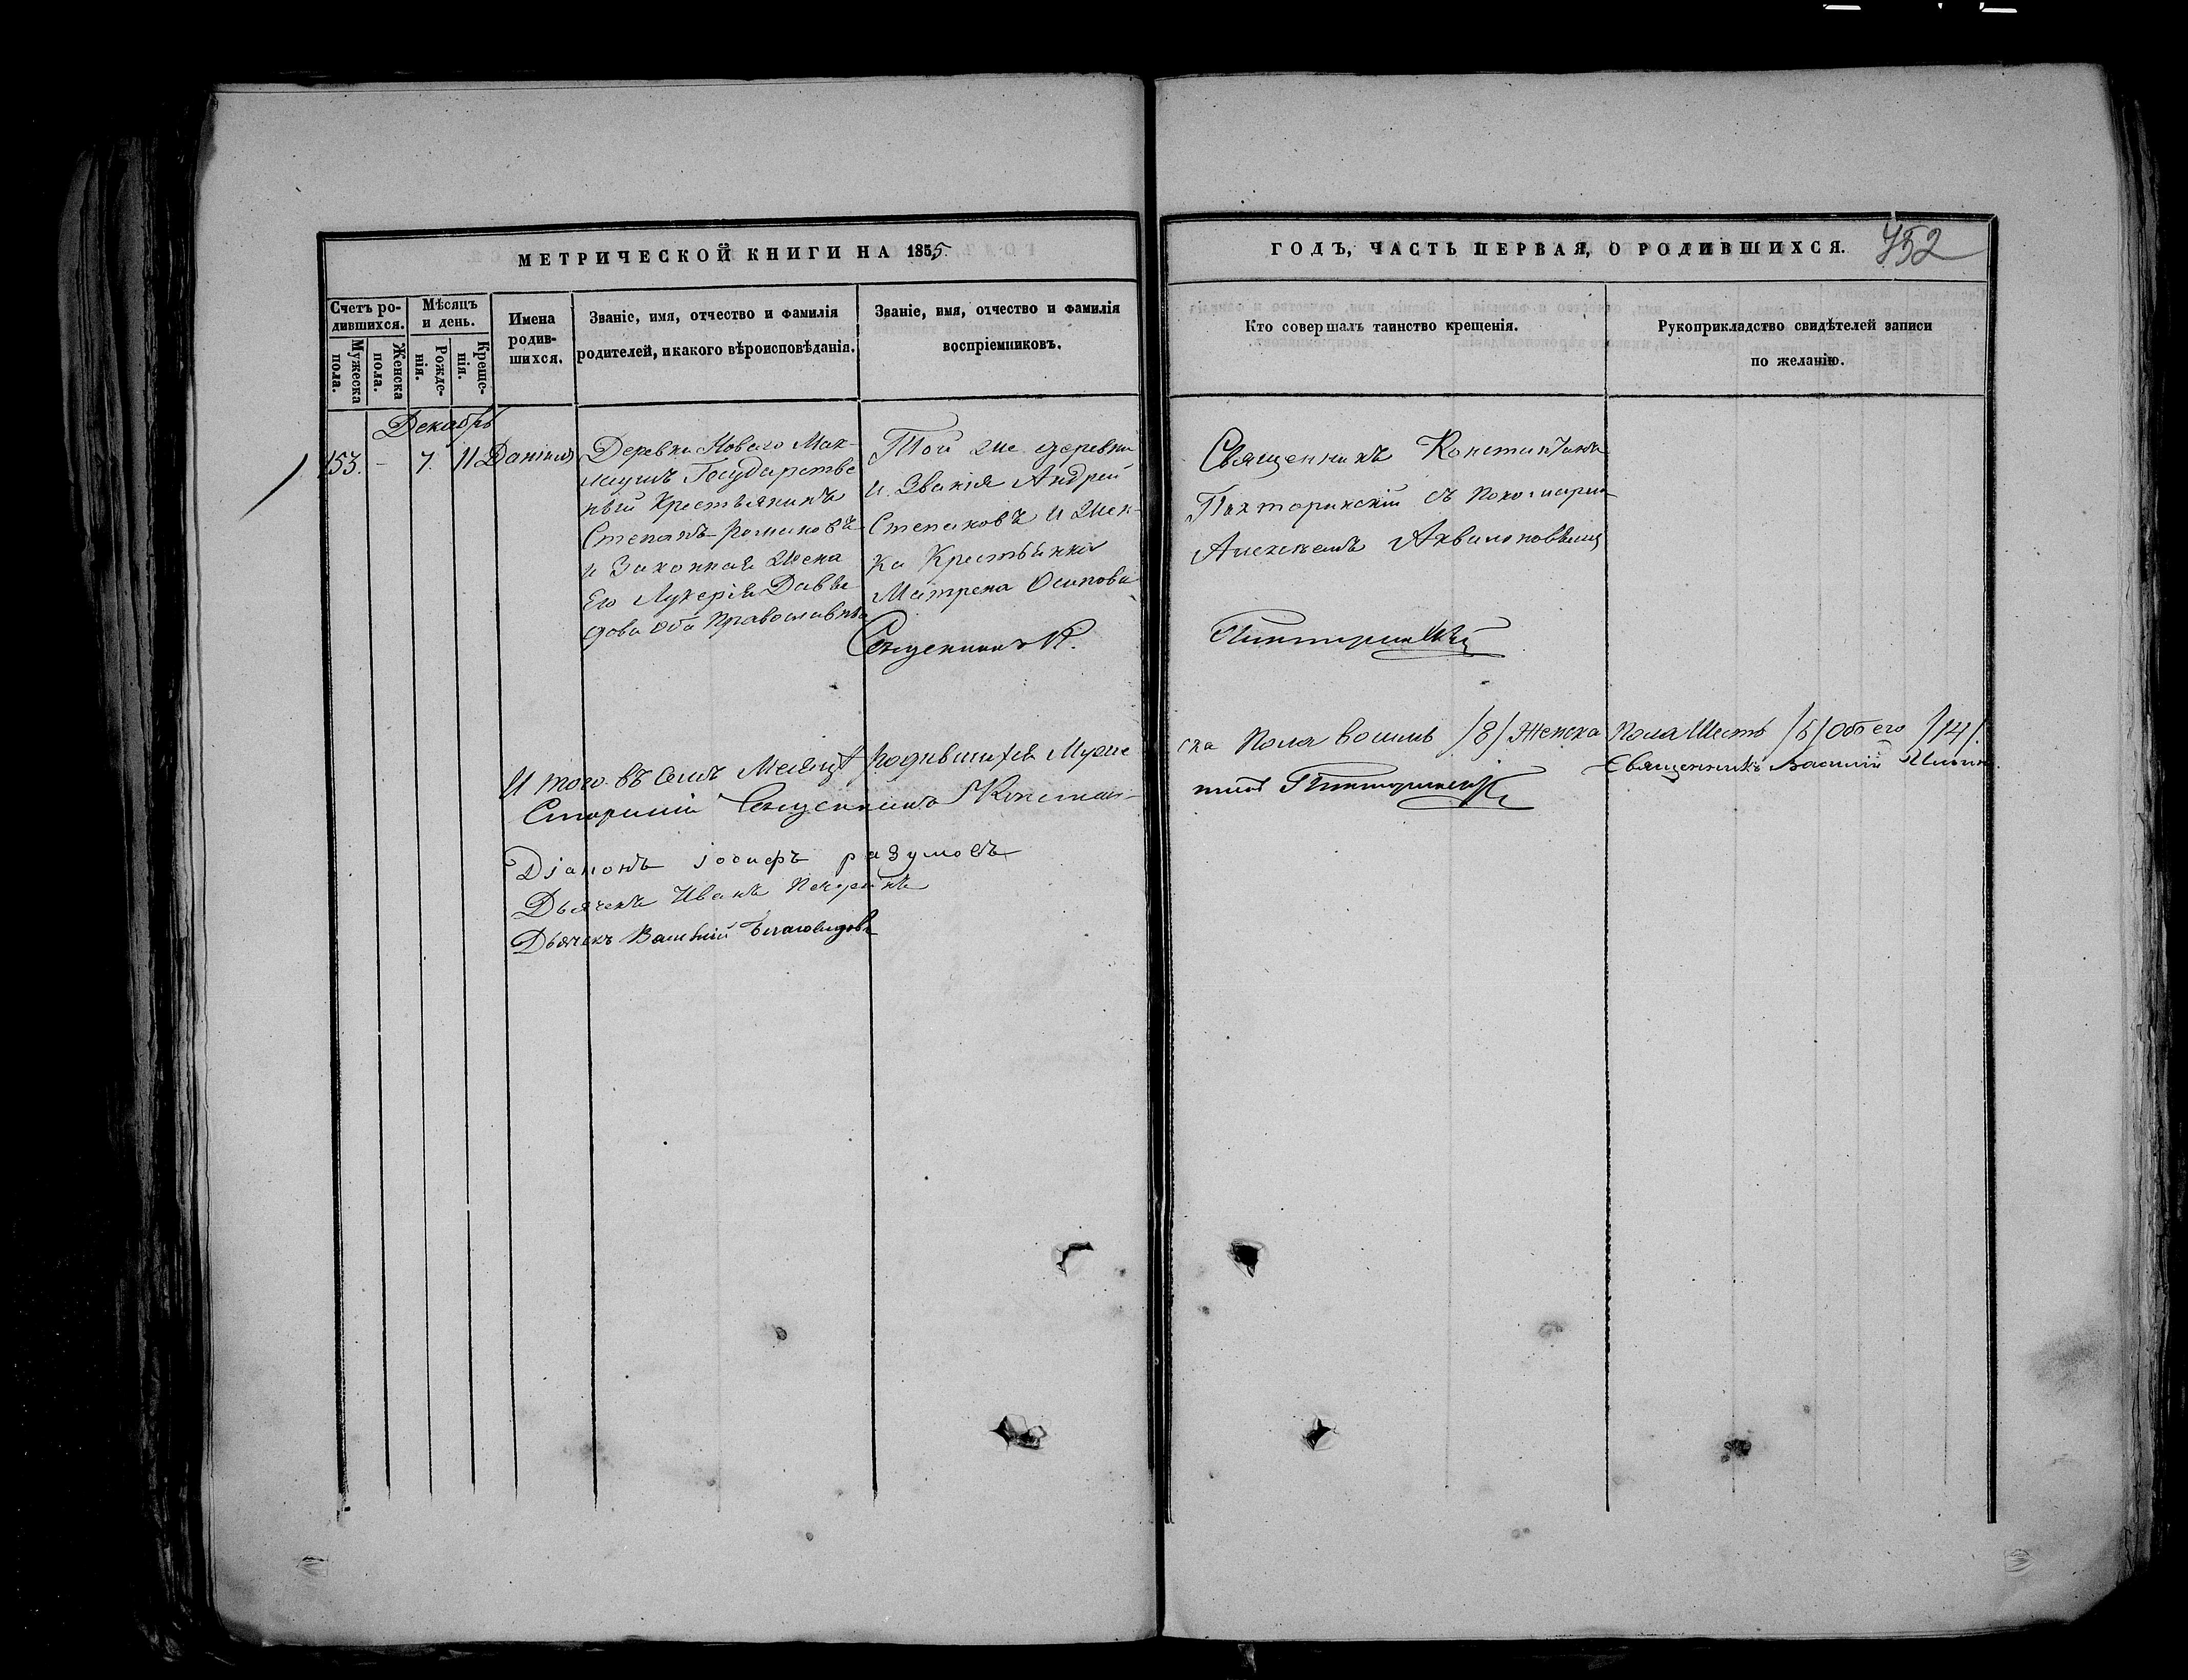 МЕТРИЧЕСКОЙ КНИГИ НА 1855
ГОДЪ, ЧАСТЬ ПЕРВАЯ, О РОДИВШИХСЯ.
752
Счетъ ро-
дившихся.
Мужеска
пола.
Женска
пола.
Мѣсяцъ
и день.
Рожде-
нія.
Креще-
нія.
Имена
родив-
шихся.
Званіе, имя, отчество и фамилія
родителей, и какого вѣроисповѣданія.
Званіе, имя, отчество и фамилія
воспріемниковъ.
Кто совершалъ таинство крещенія.
Рукоприкладство свидѣтелей записи
по желанію.
Декабрь
153. - 7. 11 Даніилъ
Деревни Новаго Мак-
Государстве
ный Крестьянинъ
Степанъ Романовъ
и Законная Жена
Его Лукерія Давы
дова Оба Православные
Той же деревни
и Званія Андрей
Степановъ и Жен-
ка Крестьянка
Матрена Осипова
Священникъ К.
Священникъ Константинъ
Пахторинскій съ Пономаремъ
Алексѣемъ Аквилоновымъ
И того въ семъ Месяцѣ родившихся Муже
ска Пола восимь /8/ Женска Пола Шесть /6/ Обоего /14/.
Старшій Священникъ Констан-
тинъ
Священникъ Василий Ильин
Діаконъ Іосифъ разумовъ
Дьячекъ Иванъ
Дьячекъ Василий Благовидовъ